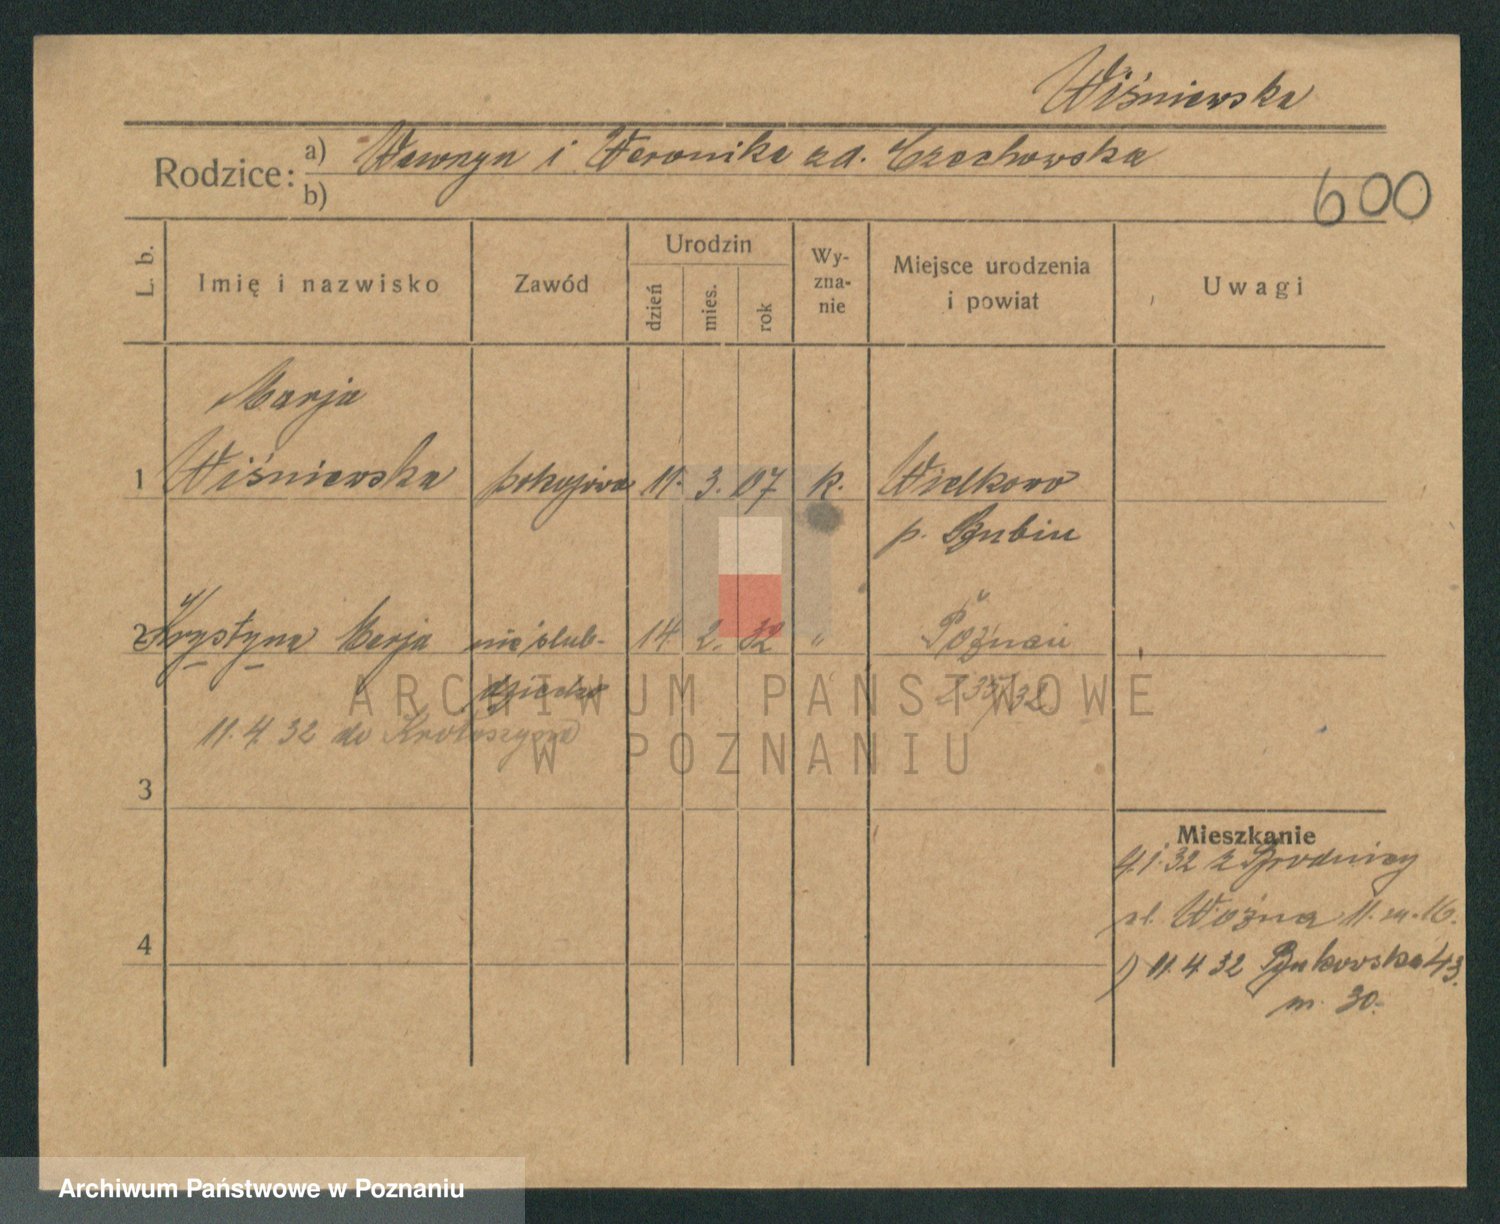 Wiśniewska
Rodzice: a) Wawrzyn i Weronika zd. Czechowska
b)
600
L. b. Imię i nazwisko Zawód Urodzin dzień mies. rok Wy-zna-nie Miejsce urodzenia i powiat Uwagi
Marja
1 Wiśniewska pokojowa 11. 3. 07 k. Wielkowo
p. Szubin
2 Krystyna Marja nieślub- 14 2. 32 " Poznań
dziecko 735/32
11.4.32 do Krotoszyna
3
Mieszkanie
4.1.32 z Brodnicy
ul. Woźna 11. m. 16.
4
1) 11.4 32 Bukowska 43.
m. 30.
ARCHIWUM PAŃSTWOWE
W POZNANIU
Archiwum Państwowe w Poznaniu